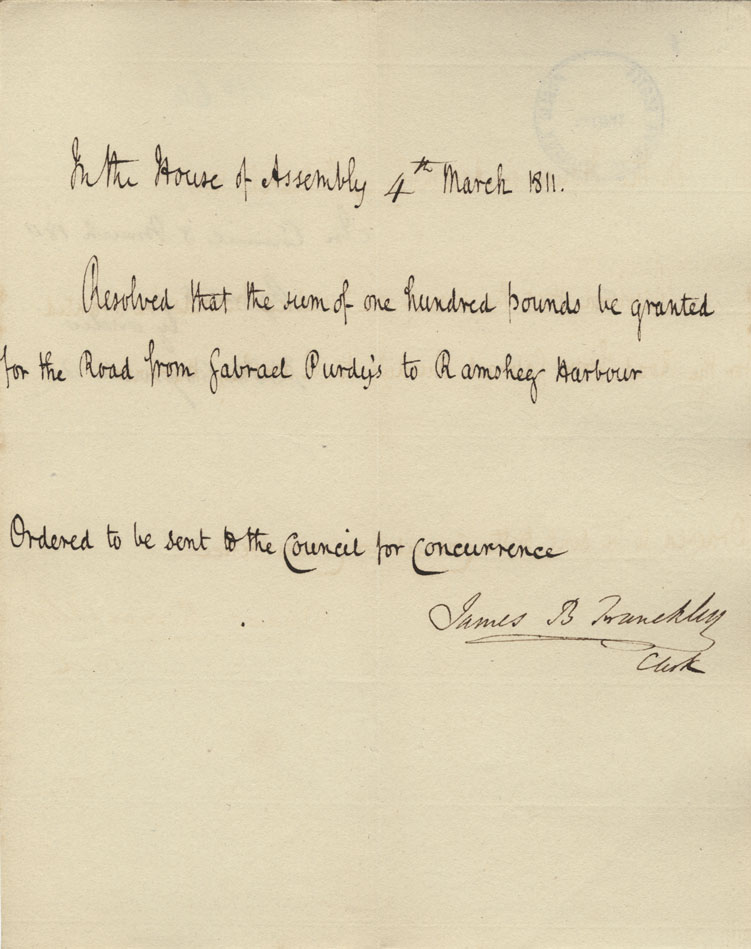 In the House of Assembly 4th March 1811.
Resolved that the sum of one hundred pounds be granted
for the Road from Gabrael Purdy's to Ramsheg Harbour
Ordered to be sent to the Council for Concurrence
James B Franckling
Clerk